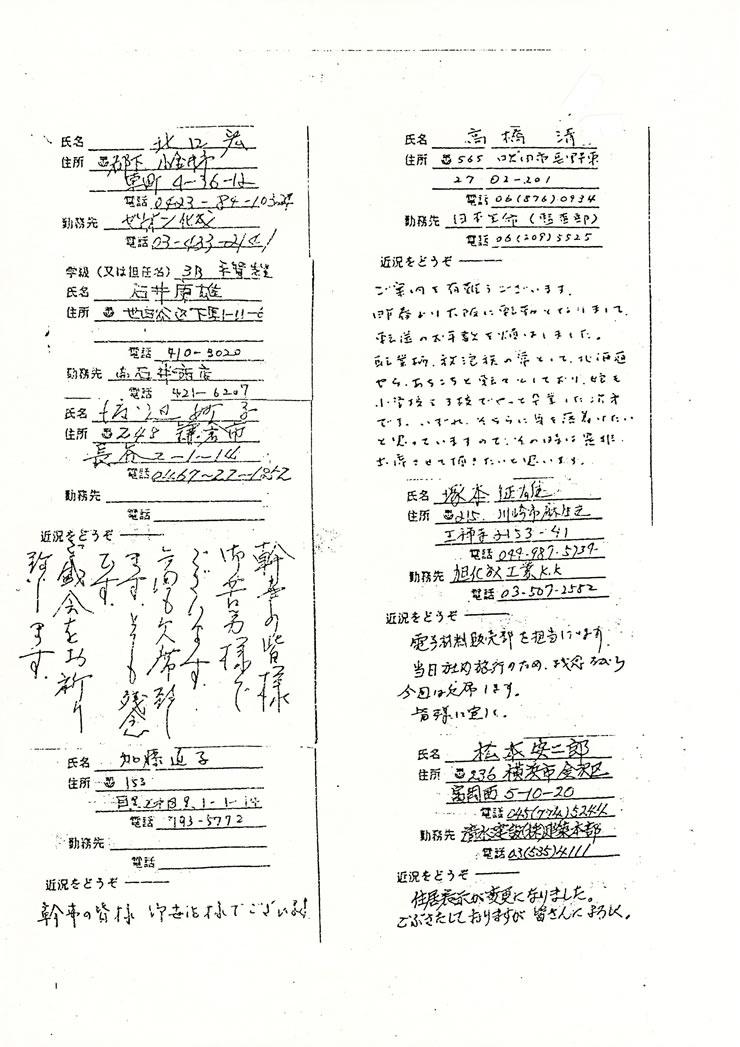 氏名 北口 宏
住所 都下 小金井市
東町 4-36-12
電話 0423-84-1032
勤務先 ゼリア化成
電話 03-433-2141
学級（又は担任名） 3B
氏名 石井康雄
住所 世田谷区下馬1-11-6
電話 410-3020
勤務先 石井商店
電話 421-6207
氏名 子
住所 〒248 鎌倉市
長谷2-1-14
電話 0467-22-1852
勤務先
電話
近況をどうぞ
幹事の皆様
御苦労様で
ございます。
今回も欠席致し
ます。とても残念
です。
ご盛会をお祈り
致します。
氏名 加藤直子
住所 〒153
目黒区 1-1-
電話 793-5772
勤務先
電話
近況をどうぞ
幹事の皆様 御世話様でございます。
氏名 高橋 清
住所 〒565 吹田市
27 D2-201
電話 06(876)0934
勤務先 日本生命
電話 06(209)5525
近況をどうぞ
ご案内を有難うございます。
昨春より大阪に転勤となりまして、
転送のお手数を煩わしました。
職業柄、放浪族の常として、北海道
やら、あちこちと転々としており、娘も
小学校を3校でやっと卒業した次第
です。いずれ、そちらに身を落着けたい
と思っていますので、その時は是非
お席させて頂きたいと思います。
氏名 塚本 征雄
住所 〒215 川崎市麻生区
王禅寺2153-41
電話 044-987-5739
勤務先 旭化成工業K.K
電話 03-507-2552
近況をどうぞ
電子材料販売部を担当しています。
当日社内旅行のため、残念ながら
今回は欠席します。
皆様に宜しく。
氏名 松本安二郎
住所 〒236 横浜市金沢区
富岡西5-10-20
電話 045(774)5244
勤務先 清水建設(株)建築本部
電話 03(535)4111
近況をどうぞ
住居表示が変更になりました。
ごぶさたしておりますが 皆さんによろしく。